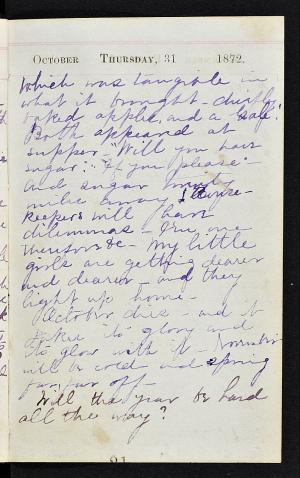 October Thursday, 31 1872.
which was tangible in
what it brought - chiefly,
baked apple, and a loaf.
Both appeared at
supper. "Will you have
sugar?" "If you please" -
and sugar
miles away! House-
keepers will have
dilemmas -
My little
girls are getting dearer
and dearer - and they
light up home.
October dies - and it
takes its glory and
its glow with it. November
will be cold and spring
far, far off -
Will the year be hard
all the way?